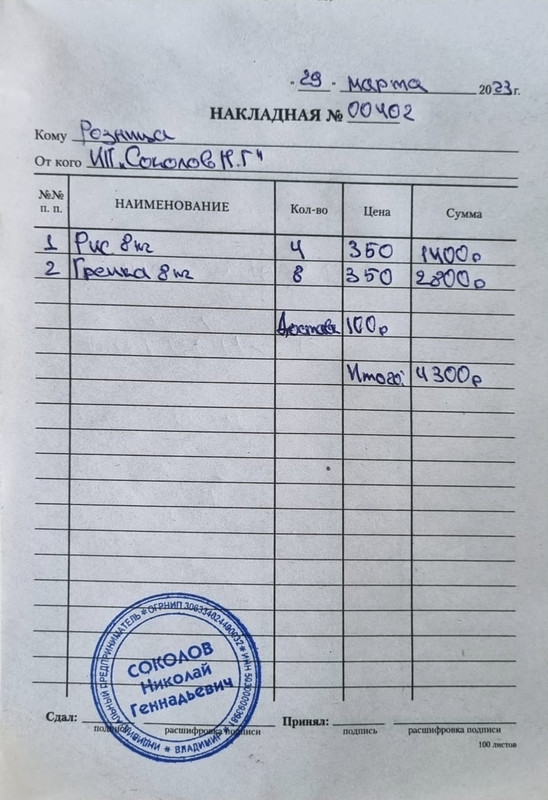 " 29 " марта 2023 г.
НАКЛАДНАЯ № 00402
Кому Розница
От кого ИП "Соколов Н.Г"
№№ п. п. НАИМЕНОВАНИЕ Кол-во Цена Сумма
1 Рис 8кг 4 350 1400р
2 Гречка 8кг 8 350 2800р
Доставка 100р
Итого: 4300р
ИНДИВИДУАЛЬНЫЙ ПРЕДПРИНИМАТЕЛЬ * ОГРНИП * ИНН * ВЛАДИМИР *
СОКОЛОВ
Николай
Геннадьевич
Сдал: Принял:
подпись расшифровка подписи подпись расшифровка подписи
100 листов